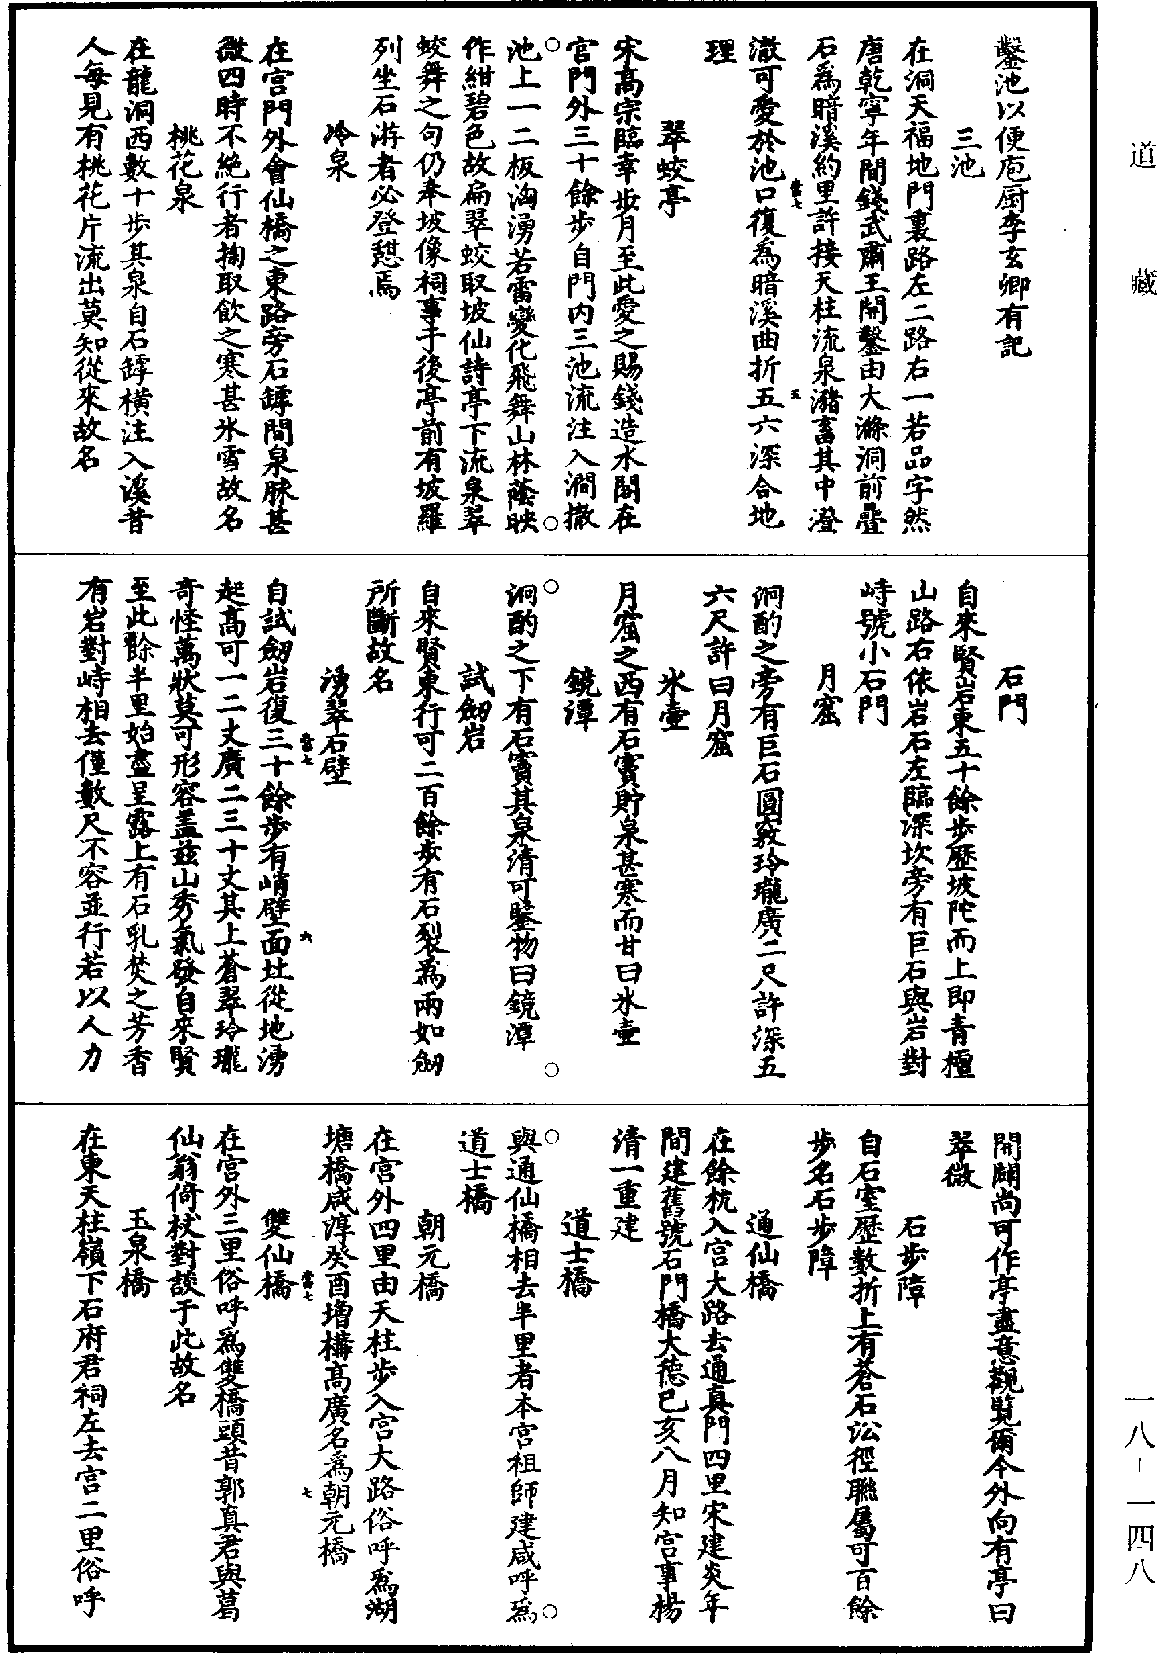 道藏
鑿池以便庖厨李玄卿有記
三池
在洞天福地門裏路左二路右一若品字然
唐乾寧年間錢武肅王開鑿由大滌洞前疊
石爲暗溪約里許接天柱流泉瀦畜其中澄
澈可愛於池口復爲暗溪曲折五六深合地
理
翠蛟亭
宋高宗臨幸步月至此愛之賜錢造水閣在
宮門外三十餘步自門内三池流注入澗撒
池上一二板洶湧若雷變化飛舞山林蔭映
作紺碧色故扁翠蛟取坡仙詩亭下流泉翠
蛟舞之句仍奉坡像祠事于後亭前有坡羅
列坐石游者必登憩焉
冷泉
在宮門外會仙橋之東路旁石罅間泉脉甚
微四時不絶行者掬取飲之寒甚氷雪故名
桃花泉
在龍洞西數十步其泉自石罅橫注入溪昔
人每見有桃花片流出莫知從來故名
石門
自來賢岩東五十餘步歷坡陀而上即青檀
山路右依岩石左臨深坎旁有巨石與岩對
峙號小石門
月窟
泂酌之旁有巨石圓竅玲瓏廣二尺許深五
六尺許曰月窟
氷壺
月窟之西有石竇貯泉甚寒而甘曰氷壺
鏡潭
泂酌之下有石竇其泉清可鑒物曰鏡潭
試劒岩
自來賢東行可二百餘步有石裂爲兩如劒
所斷故名
湧翠石壁
自試劒岩復三十餘步有峭壁面址從地湧
起高可一二丈廣二三十丈其上蒼翠玲瓏
奇怪萬狀莫可形容盖兹山秀氣發自來賢
至此餘半里始盡呈露上有石乳焚之芳香
有岩對峙相去僅數尺不容並行若以人力
開闢尚可作亭盡意觀覽爾今外向有亭曰
翠微
石步障
自石室歷數折上有蒼石㳂徑聯屬可百餘
步名石步障
通仙橋
在餘杭入宮大路去通真門四里宋建炎年
間建舊號石門橋大德已亥八月知宮事楊
清一重建
道士橋
與通仙橋相去半里者本宮祖師建咸呼爲
道士橋
朝元橋
在宮外四里由天柱步入宮大路俗呼爲湖
塘橋咸淳癸酉增構高廣名爲朝元橋
雙仙橋
在宮外三里俗呼爲雙橋頭昔郭真君與葛
仙翁倚杖對談于此故名
玉泉橋
在東天柱嶺下石府君祠左去宮二里俗呼
一八-一四八